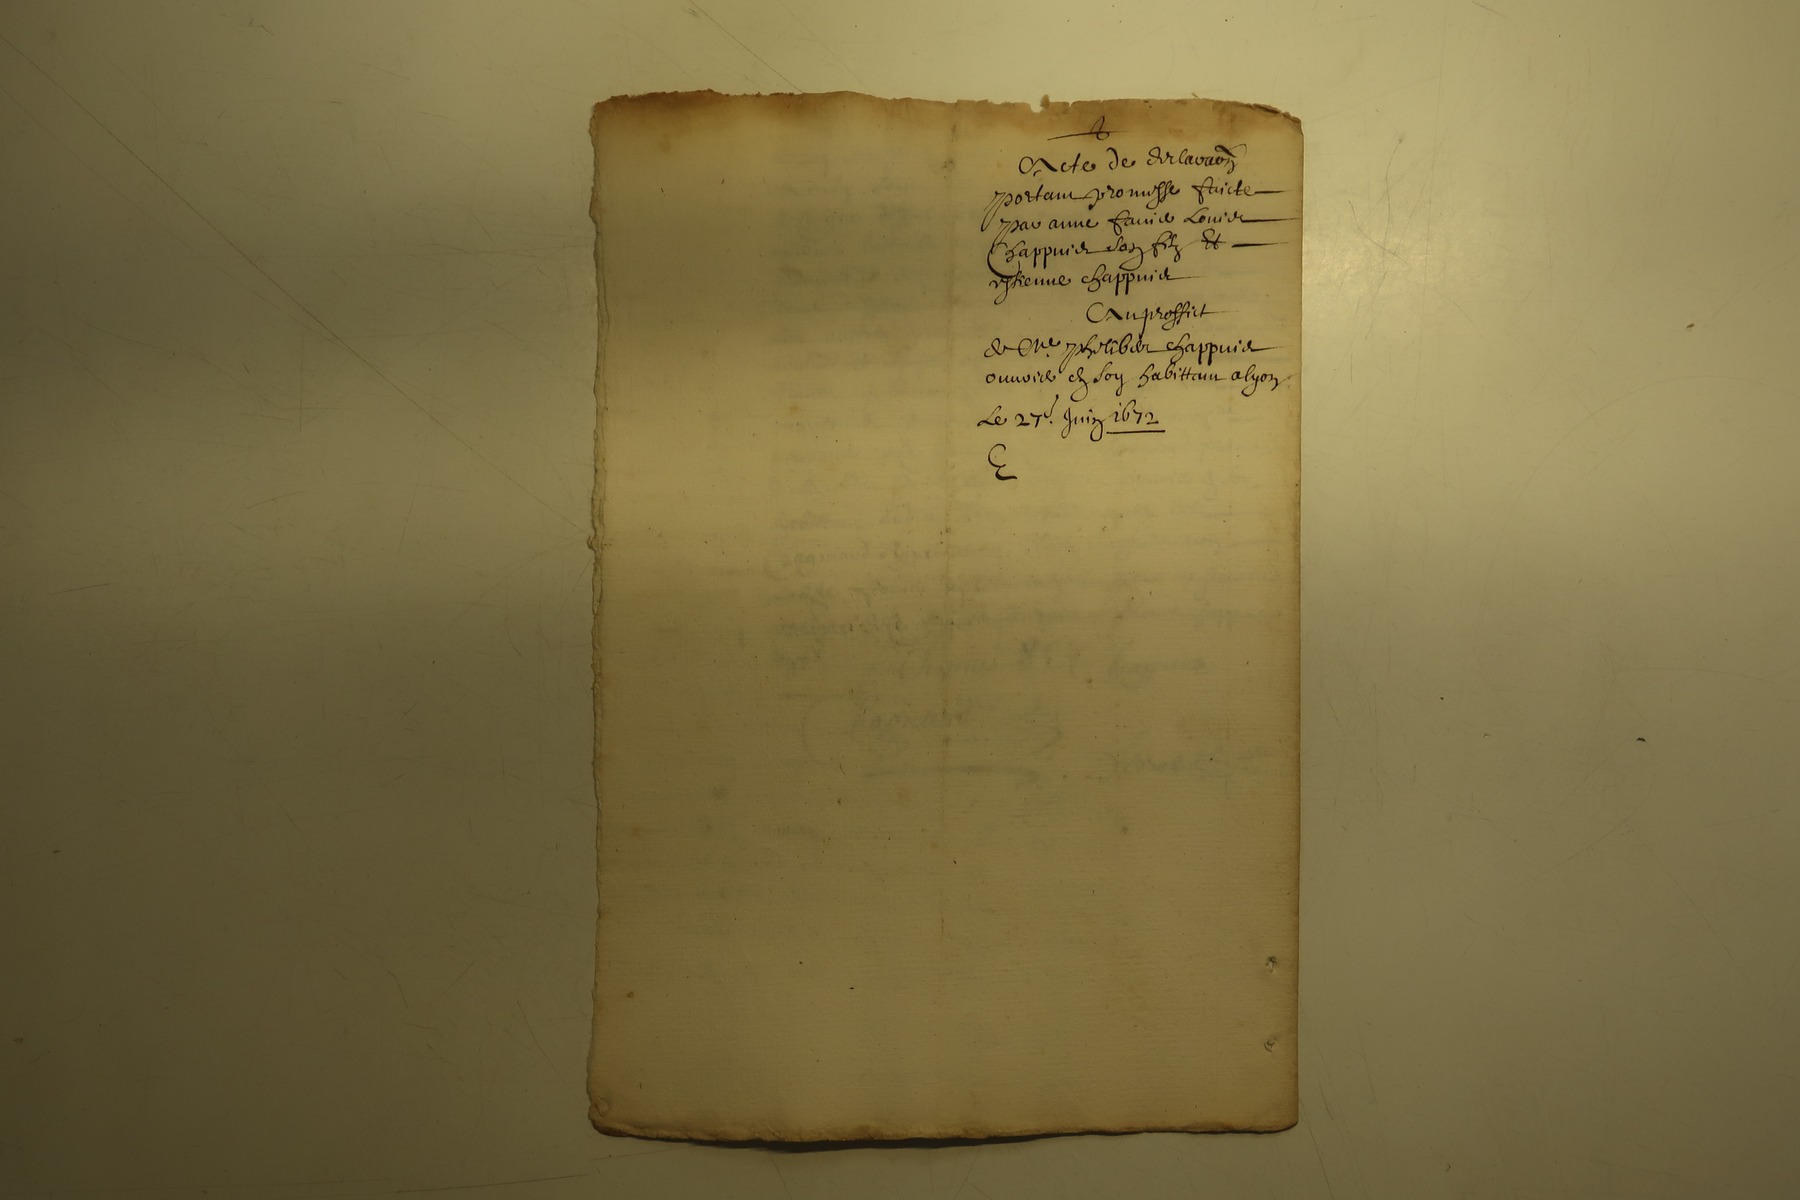 Acte de declaraon
portant promesse faicte
par anne favie Louis
Chappuis son filz Et
estienne chappuis
Au proffict
de Me philibert chappuis
ouvrier en soy habittant a lyon
Le 27e Juin 1672